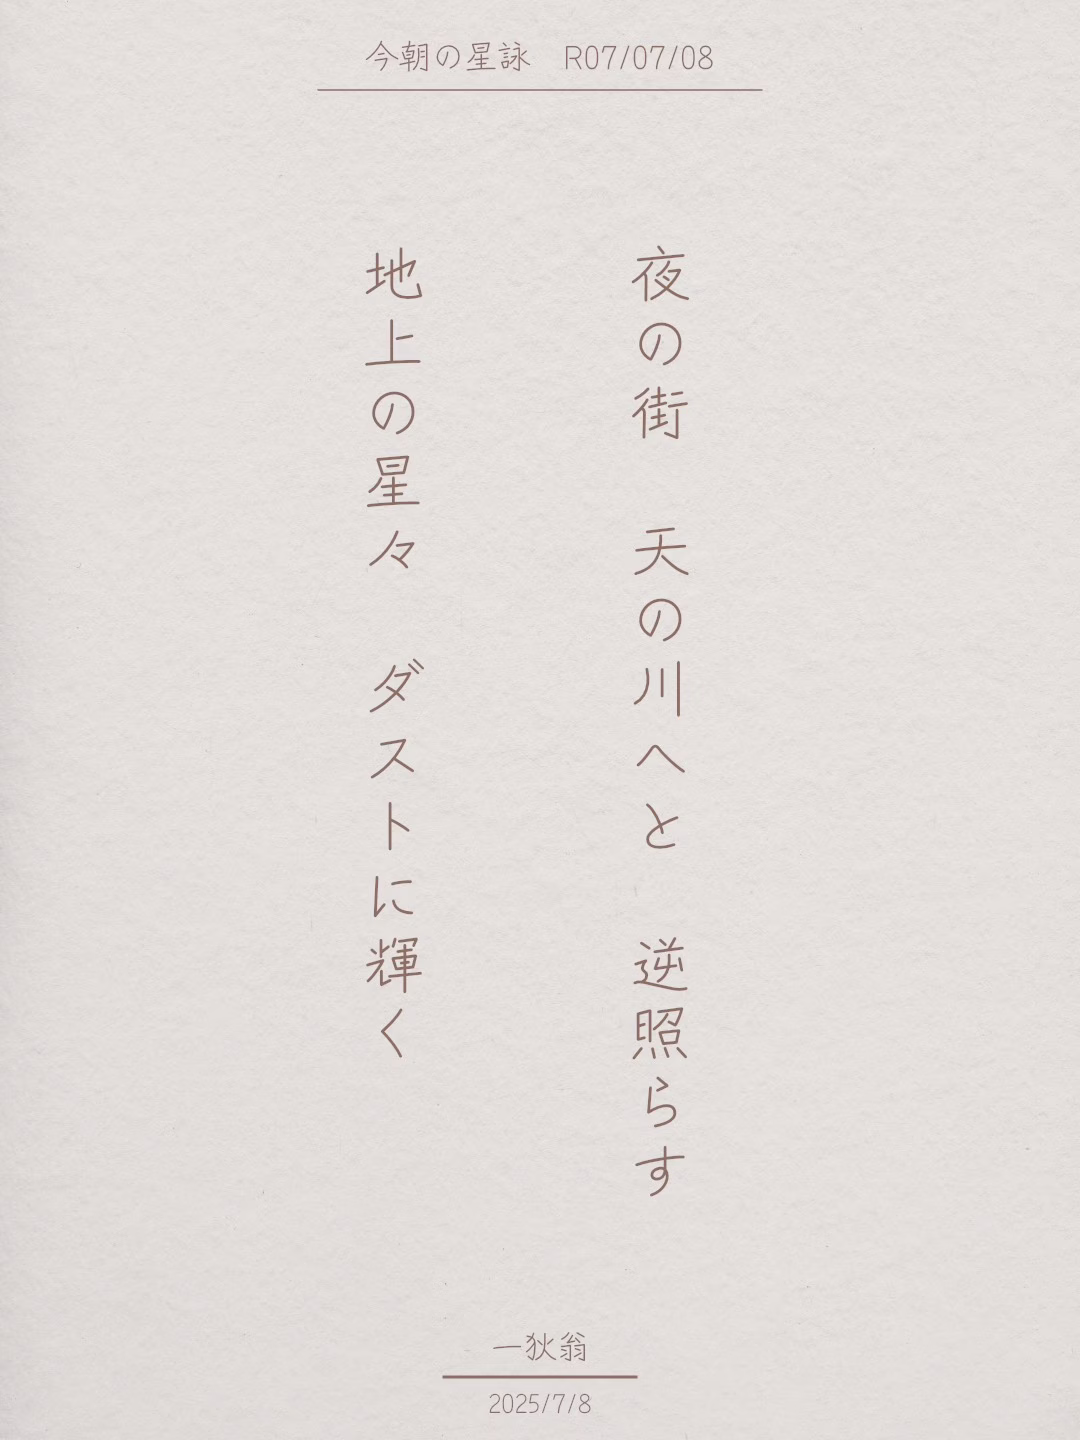 今朝の星詠　R07/07/08
夜の街　天の川へと　逆照らす
地上の星々　ダストに輝く
一狄翁
2025/7/8